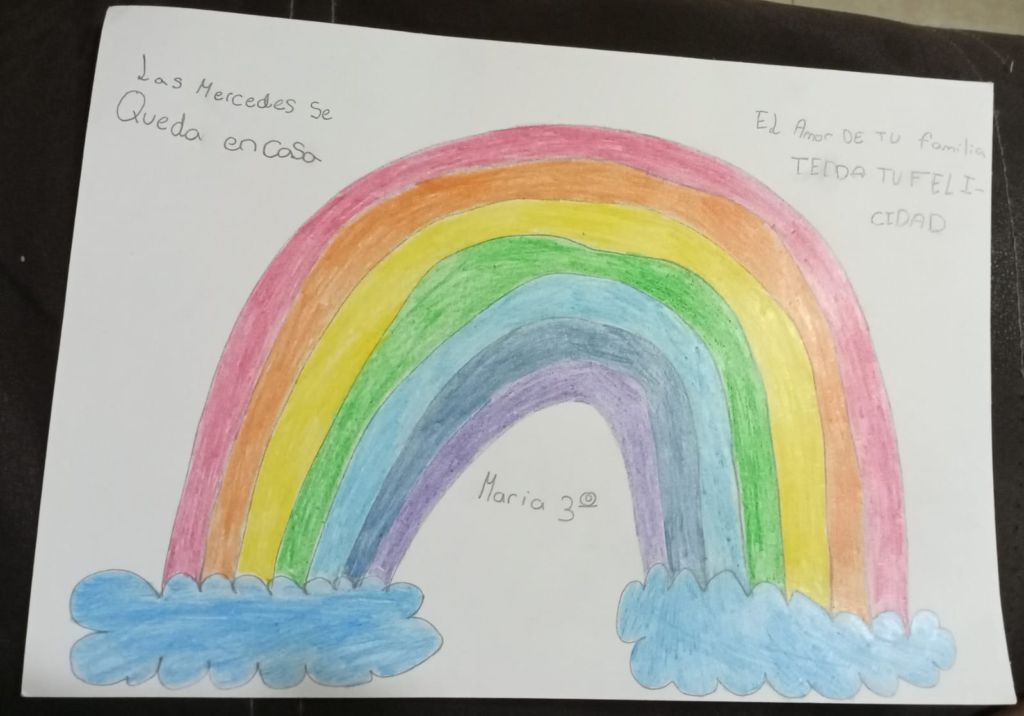 Las Mercedes Se
Queda en casa
El Amor DE TU familia
TE DA TU FELI-
CIDAD
Maria 3º